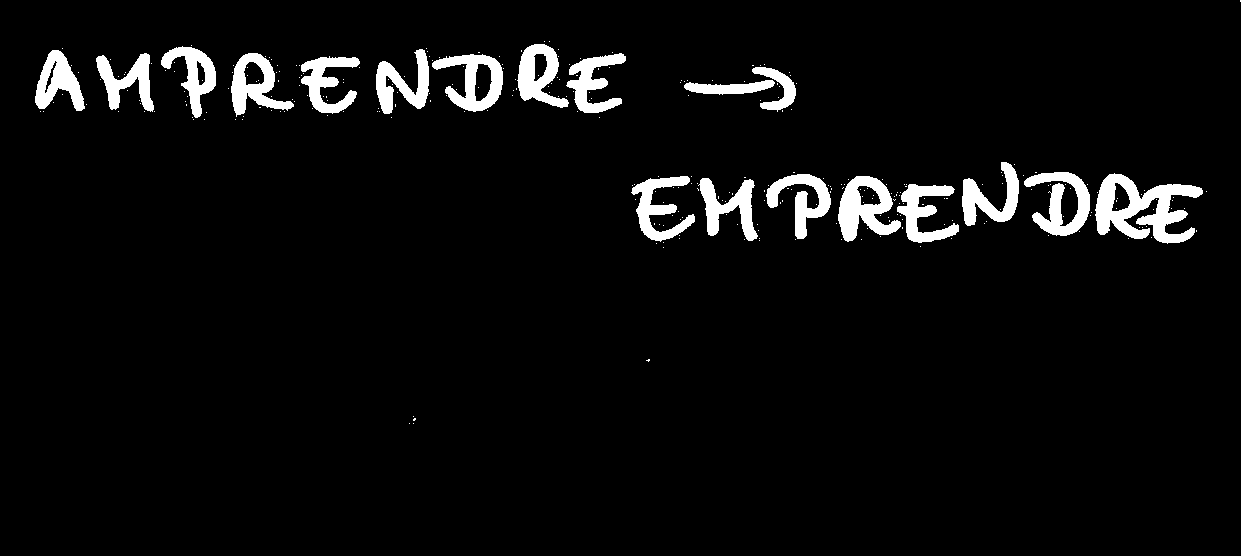 AMPRENDRE →
EMPRENDRE